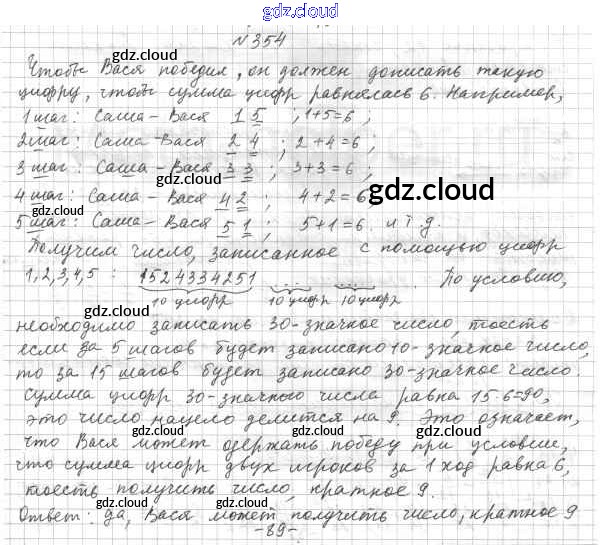 gdz.cloud
№354
gdz.cloud
Чтобы Вася победил, он должен дописать такую
цифру, чтобы сумма цифр равнялась 6. Например,
gdz.cloud
1 шаг: Саша – Вася 1 5 ; 1+5=6 ;
2 шаг: Саша – Вася 2 4 ; 2+4=6 ;
gdz.cloud gdz.cloud
3 шаг: Саша – Вася 3 3 ; 3+3=6 ;
4 шаг: Саша – Вася 4 2 ; 4+2=6
gdz.cloud
5 шаг: Саша – Вася 5 1 ; 5+1=6 и т.д.
gdz.cloud
Получим число, записанное с помощью цифр
1,2,3,4,5 : 1524334251 ... ... . По условию,
10 цифр 10 цифр 10 цифр
gdz.cloud gdz.cloud
необходимо записать 30-значное число, тоесть
если за 5 шагов будет записано 10-значное число,
то за 15 шагов будет записано 30-значное число.
gdz.cloud
Сумма цифр 30-значного числа равна 15·6=90,
это число нацело делится на 9. Это означает,
gdz.cloud gdz.cloud
что Вася может одержать победу при условии,
что сумма цифр двух игроков за 1 ход равна 6,
тоесть получить число, кратное 9.
gdz.cloud
Ответ: да, Вася может получить число, кратное 9
-89-
gdz.cloud